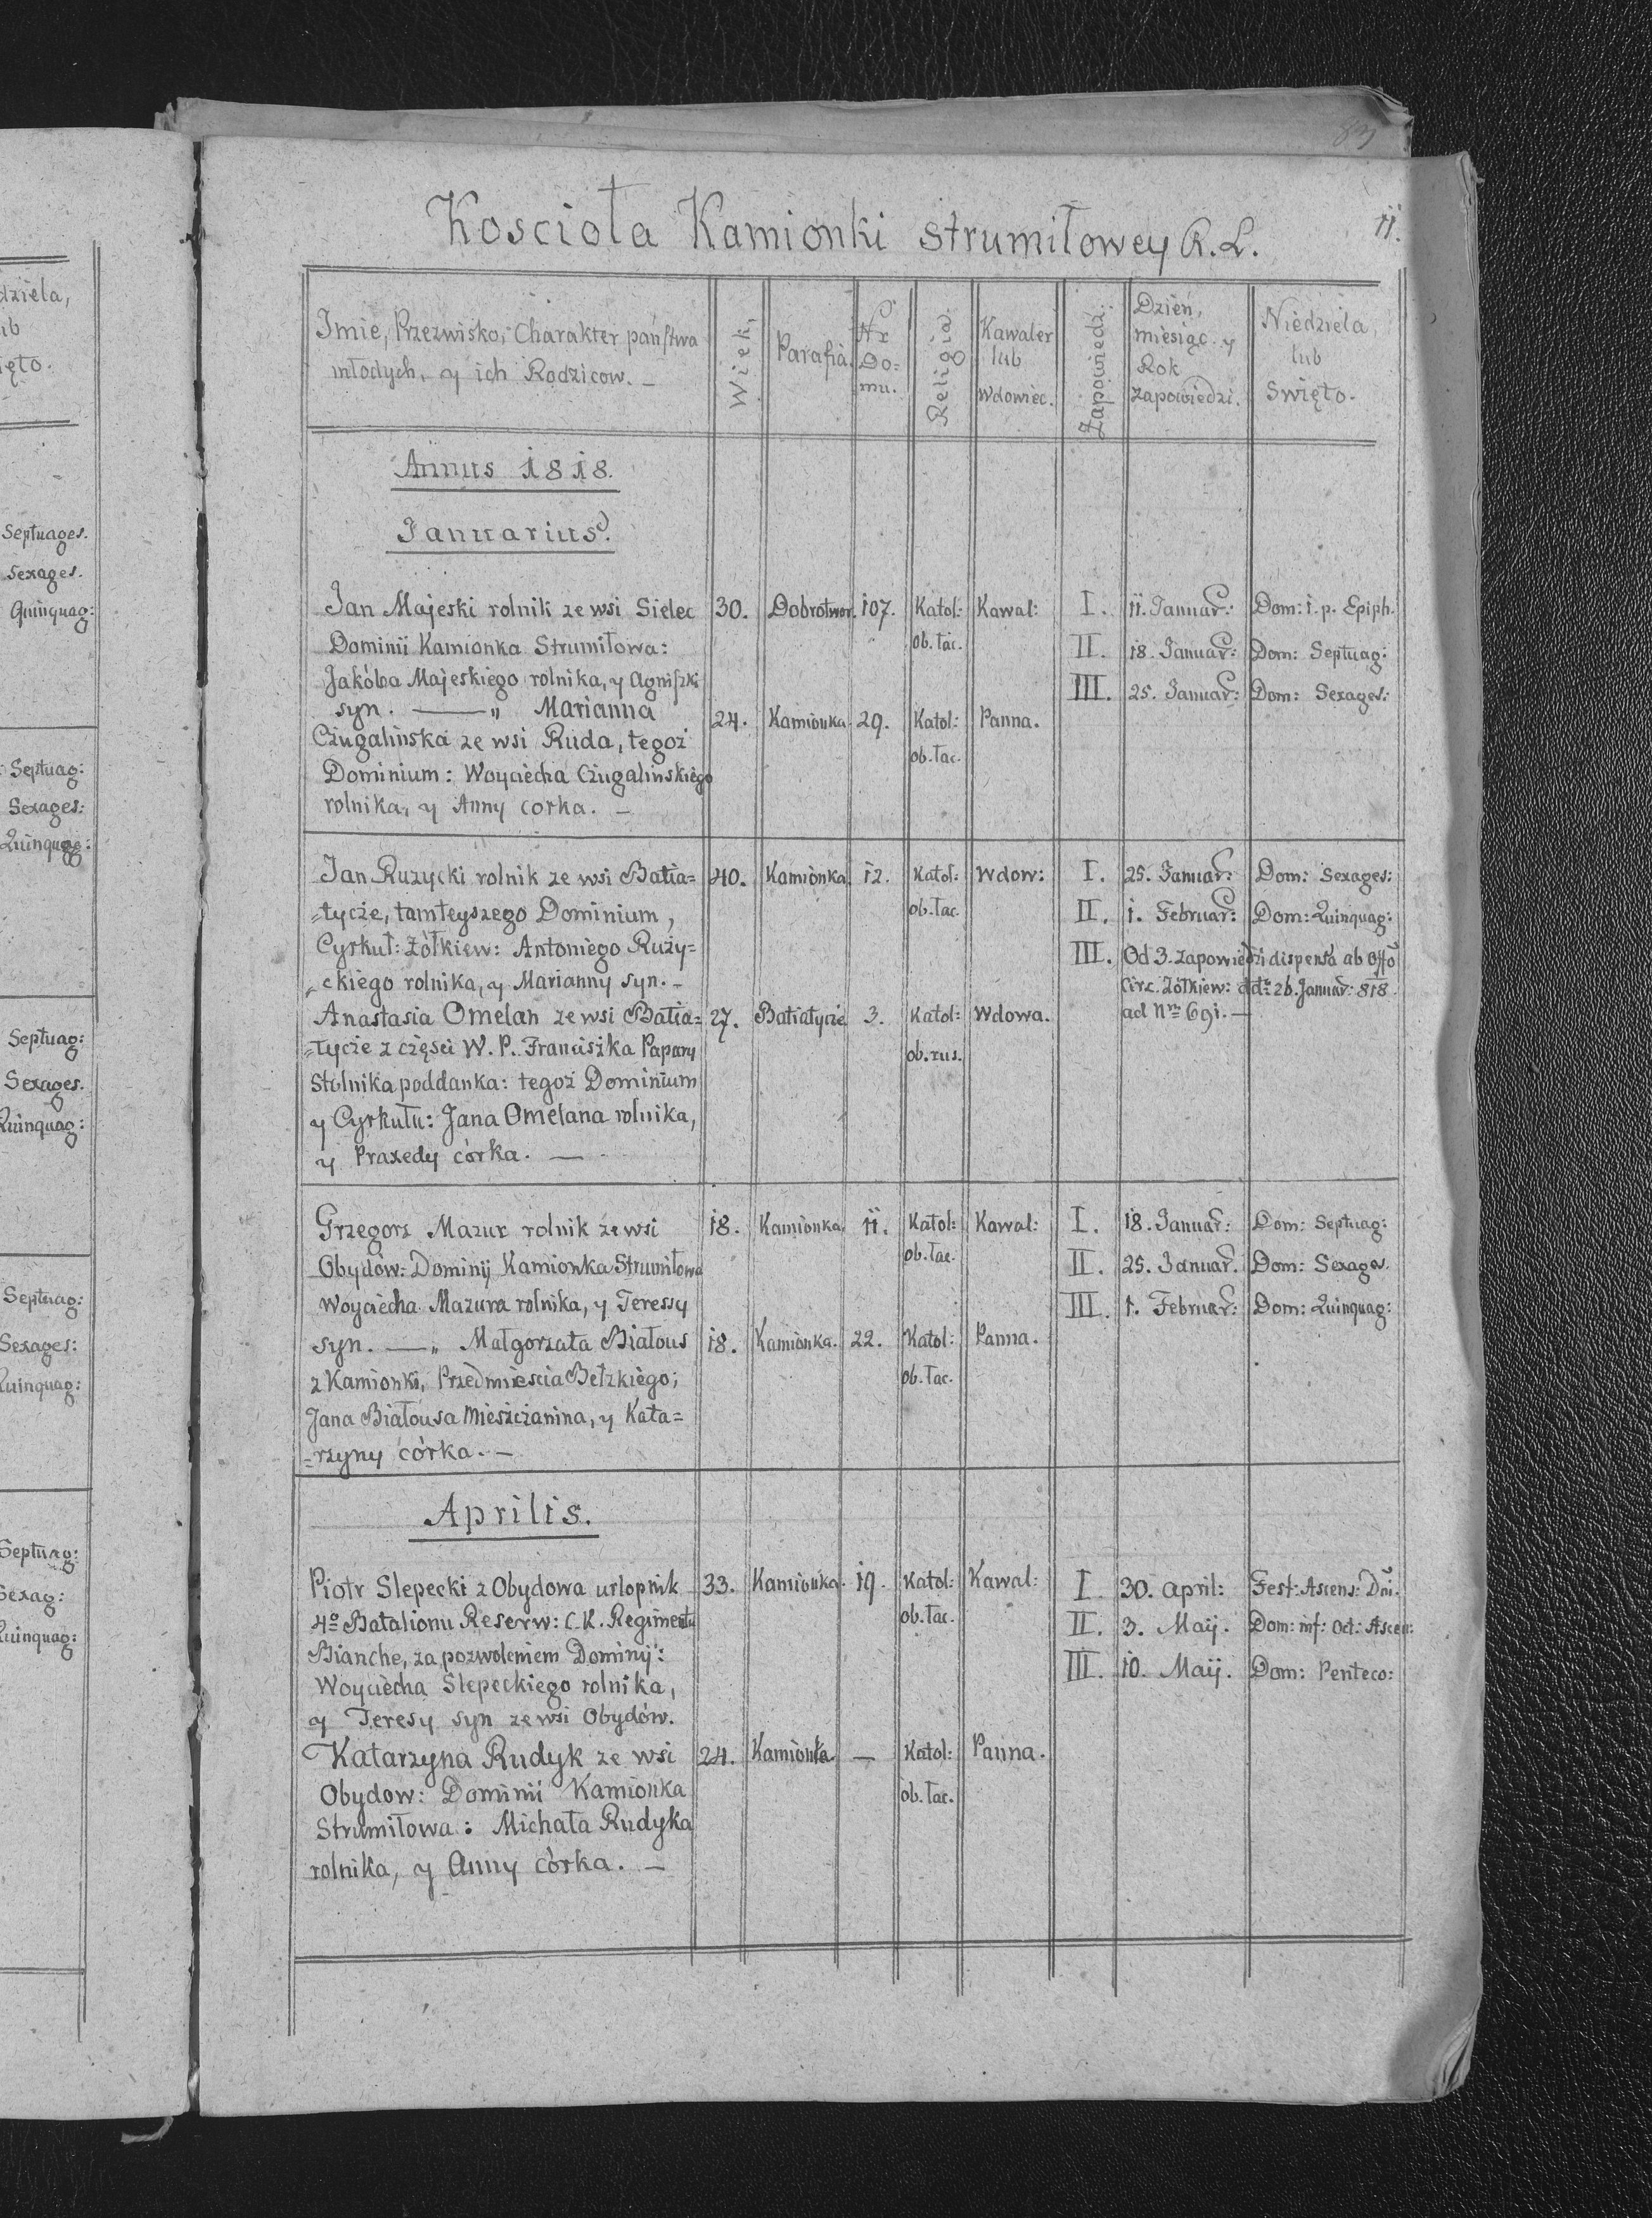 83
Koscioła Kamionki Strumiłowey R. L.
11.
Imie, Przezwisko, Charakter państwa
młodych, y ich Rodzicow. —
Wiek.
Parafia.
Nr
Do=
mu.
Religia.
Kawaler
lub
Wdowiec.
Zapowiedzi.
Dzień,
miesiąc y
Rok
Zapowiedzi.
Niedziela,
lub
Swięto.
Annus 1818.
Januarius.
Jan Majeski rolnik ze wsi Sielec 30. Dobrotwor. 107. Katol: Kawal: I. 11. Januar: Dom: 1. p. Epiph.
Dominii Kamionka Strumiłowa: ob. łac. II. 18. Januar: Dom: Septuag:
Jakóba Majeskiego rolnika, y Agniszki III. 25. Januar: Dom: Sexages:
syn. — „ Marianna 24. Kamionka 29. Katol: Panna.
Czugalinska ze wsi Ruda, tegoż ob. łac.
Dominium: Woyciecha Czugalinskiego
rolnika, y Anny corka. —
Jan Ruzycki rolnik ze wsi Batia= 40. Kamionka 12. Katol: Wdow: I. 25. Januar: Dom: Sexages:
=tycze, tamteyszego Dominium, ob. łac. II. 1. Februar: Dom: Quinquag:
Cyrkuł: Żółkiew: Antoniego Ruży= III. Od 3. zapowiedzi dispensa ab Offo
=ckiego rolnika, y Marianny syn. — Circ. Żółkiew: ddto 26. Januar: 818.
Anastasia Omelan ze wsi Batia= 27. Batiatycze 3. Katol: Wdowa. ad Nrm 691. —
=tycze z częsci W. P. Franciszka Papary ob. rus.
Stolnika poddanka: tegoż Dominium
y Cyrkułu: Jana Omelana rolnika,
y Praxedy córka. —
Grzegorz Mazur rolnik ze wsi 18. Kamionka 11. Katol: Kawal: I. 18. Januar: Dom: Septuag:
Obydów: Dominij Kamionka Strumiłowa ob. łac. II. 25. Januar. Dom: Sexages.
Woyciecha Mazura rolnika, y Teressy III. 1. Februar: Dom: Quinquag:
syn. — „ Małgorzata Białous 18. Kamionka. 22. Katol: Panna.
z Kamionki, Przedmiescia Bełzkiego; ob. łac.
Jana Białousa Mieszczanina, y Kata=
=rzyny córka. —
Aprilis.
Piotr Slepecki z Obydowa urlopnik 33. Kamionka. 19. Katol: Kawal: I. 30. April: Fest: Ascens: Dni.
4o Batalionu Reserw: C. K. Regimentu ob. łac. II. 3. Maij. Dom: inf: Oct: Ascen:
Bianche, za pozwoleniem Dominij: III. 10. Maij. Dom: Penteco:
Woyciecha Slepeckiego rolnika,
y Teresy syn ze wsi Obydów.
Katarzyna Rudyk ze wsi 24. Kamionka. — Katol: Panna.
Obydow: Dominii Kamionka ob. łac.
Strumiłowa: Michała Rudyka
rolnika, y Anny córka. —
dziela,
ub
ięto.
Septuages.
Sexages.
Quinquag:
Septuag:
Sexages:
Quinquag:
Septuag:
Sexages.
Quinquag:
Septuag:
Sexages:
Quinquag:
Septuag:
Sexag:
Quinquag: